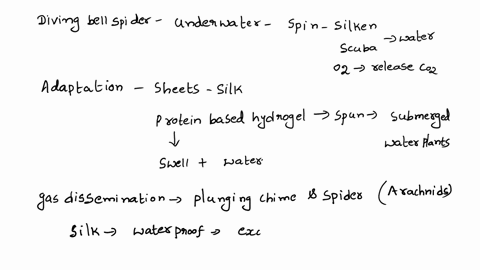 Diving bell spider - underwater - spin - silken
scuba → water
O2 → release CO2
Adaptation - sheets - silk
protein based hydrogel → spun → submerged
water plants
↓
swell + water
gas dissemination → plunging chime & spider (Arachnids)
silk → waterproof → exc